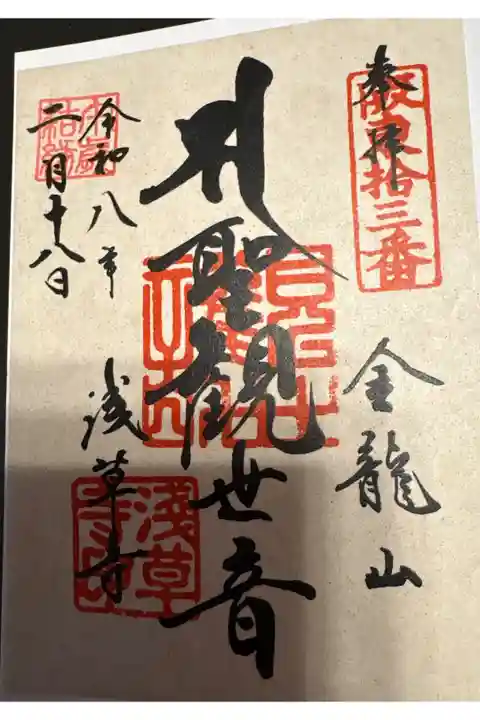 奉拝
坂東拾三番
金龍山
聖観世音
令和八年
二月十八日
浅草寺